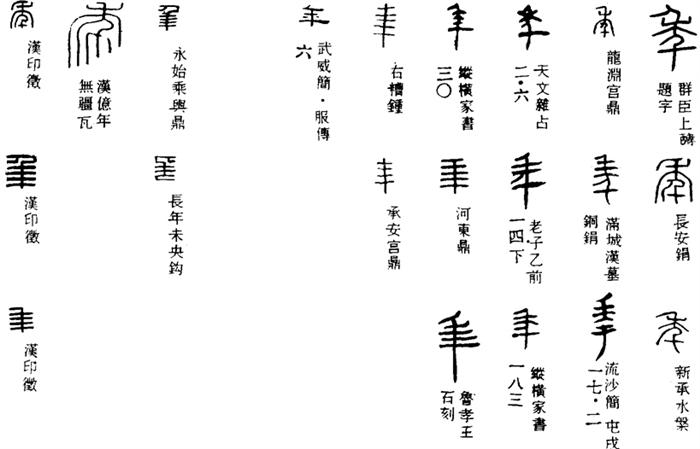 年
群臣上醻
題字
年
長安鋗
年
新承水槃
年
龍淵宮鼎
年
滿城漢墓
銅鋗
年
流沙簡 屯戍
一七·二
年
天文雜占
二·六
年
老子乙前
一四下
年
縱橫家書
一八三
年
縱橫家書
三〇
年
河東鼎
年
魯孝王
石刻
年
右糟鍾
年
承安宮鼎
年
武威簡·服傳
六
年
永始乘輿鼎
年
長年未央鈎
年
漢億年
無疆瓦
年
漢印徵
年
漢印徵
年
漢印徵